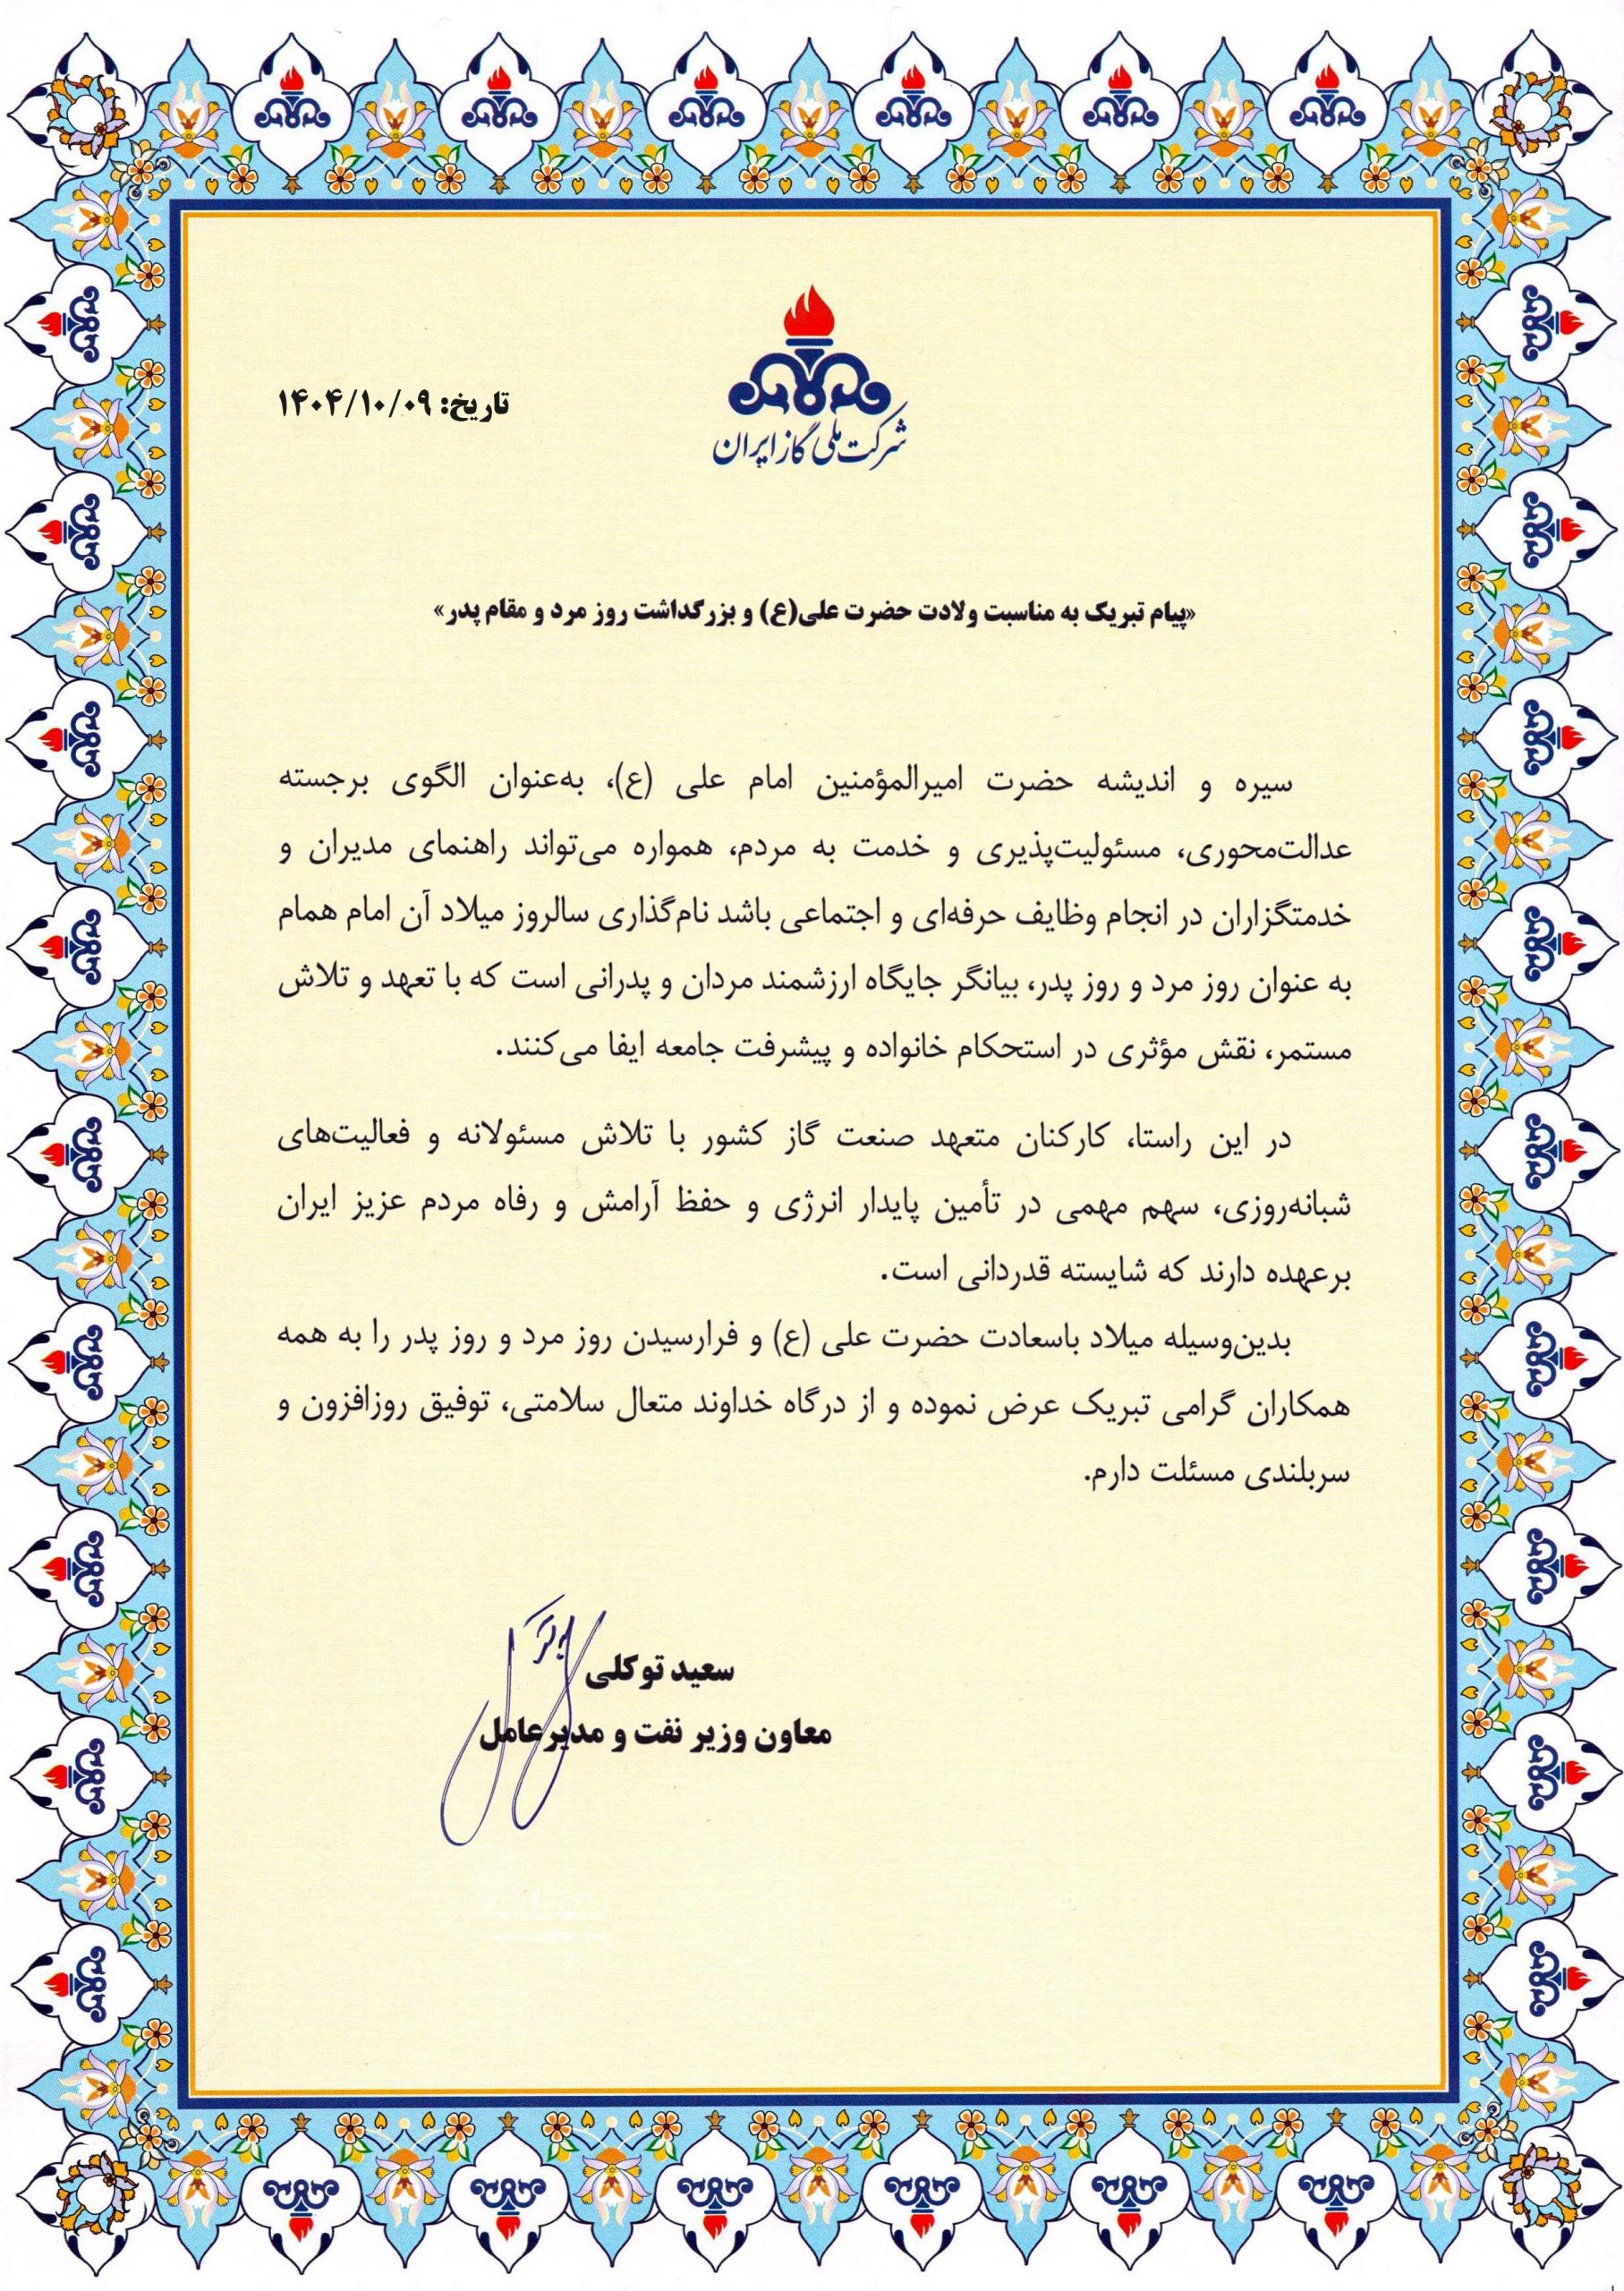 شرکت ملی گاز ایران
تاریخ: ۱۴۰۴/۱۰/۰۹
«پیام تبریک به مناسبت ولادت حضرت علی(ع) و بزرگداشت روز مرد و مقام پدر»
سیره و اندیشه حضرت امیرالمؤمنین امام علی (ع)، به‌عنوان الگوی برجسته
عدالت‌محوری، مسئولیت‌پذیری و خدمت به مردم، همواره می‌تواند راهنمای مدیران و
خدمتگزاران در انجام وظایف حرفه‌ای و اجتماعی باشد نام‌گذاری سالروز میلاد آن امام همام
به عنوان روز مرد و روز پدر، بیانگر جایگاه ارزشمند مردان و پدرانی است که با تعهد و تلاش
مستمر، نقش مؤثری در استحکام خانواده و پیشرفت جامعه ایفا می‌کنند.
در این راستا، کارکنان متعهد صنعت گاز کشور با تلاش مسئولانه و فعالیت‌های
شبانه‌روزی، سهم مهمی در تأمین پایدار انرژی و حفظ آرامش و رفاه مردم عزیز ایران
برعهده دارند که شایسته قدردانی است.
بدین‌وسیله میلاد باسعادت حضرت علی (ع) و فرارسیدن روز مرد و روز پدر را به همه
همکاران گرامی تبریک عرض نموده و از درگاه خداوند متعال سلامتی، توفیق روزافزون و
سربلندی مسئلت دارم.
سعید توکلی
معاون وزیر نفت و مدیرعامل